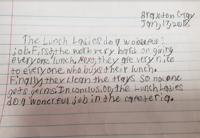 Braxton Gray
Jan, 17, 2018
The Lunch Ladies do a
job. First, the work very hard on giving
everyone lunch. Next, they are very nice
to everyone who buys their lunch.
Finally, they clean the trays so no one
gets germs. In conclusion, the Lunch Ladies
do a wonerful job in the cafeteria.